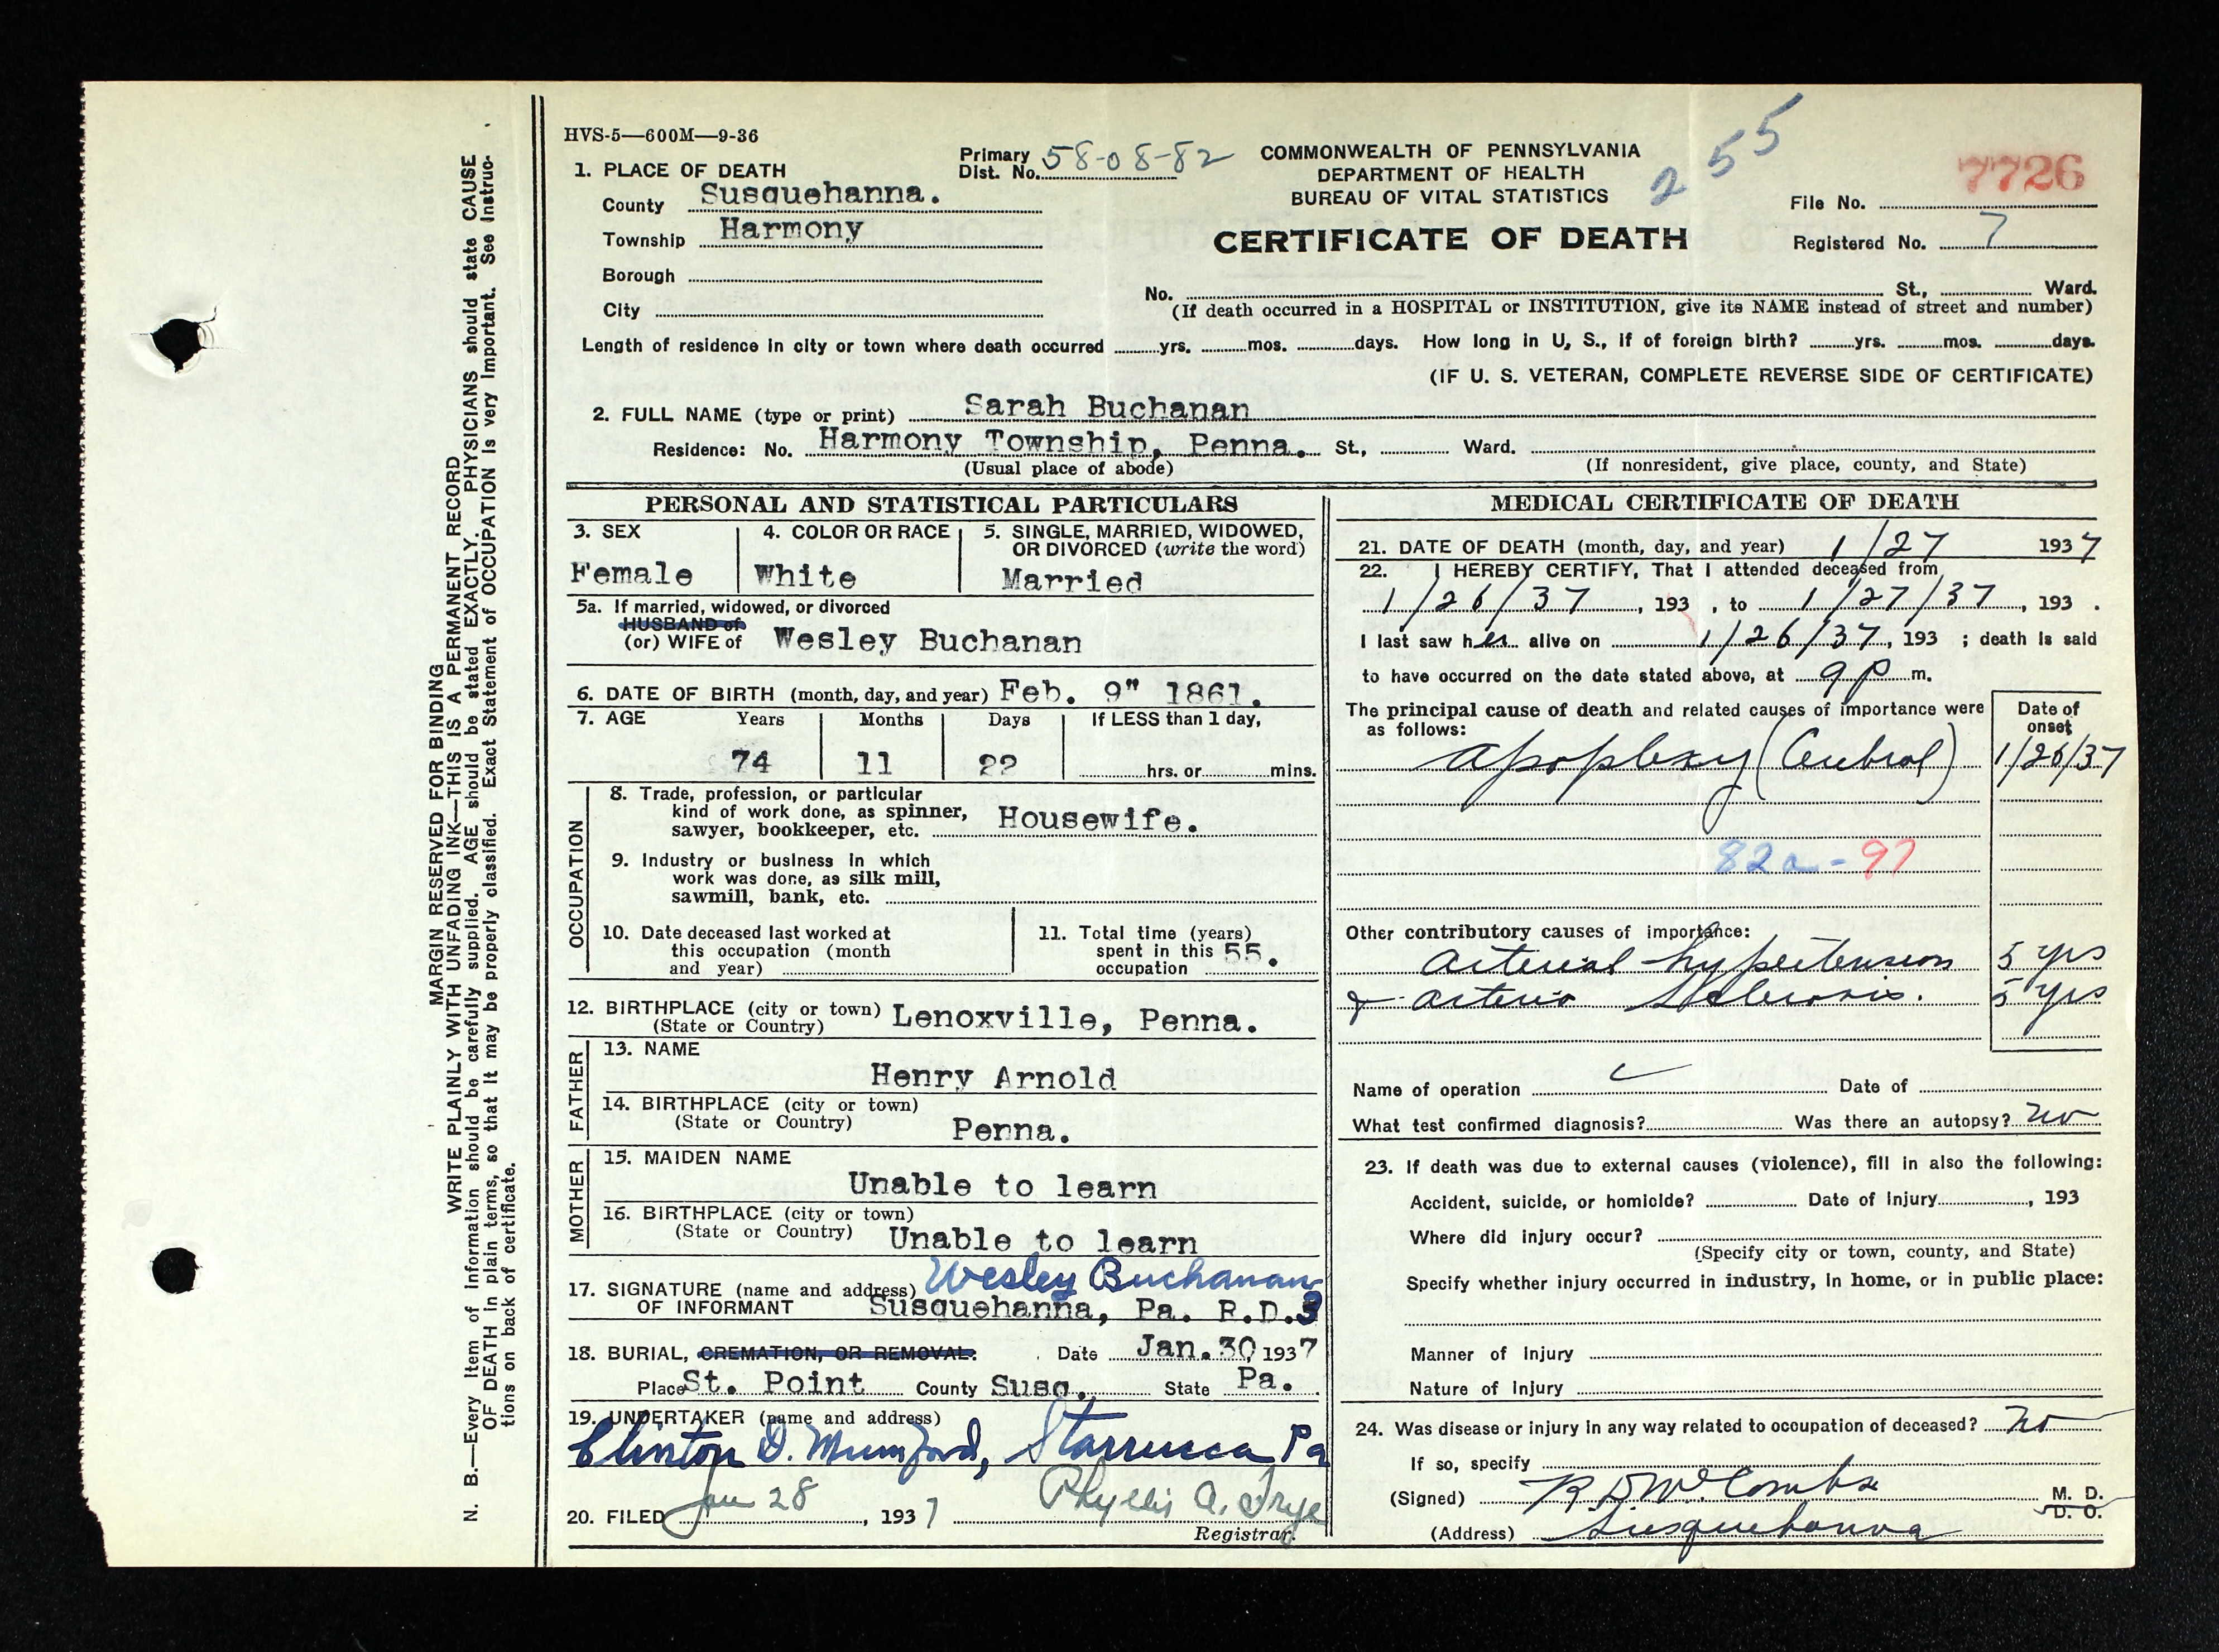 HVS-5—600M—9-36
1. PLACE OF DEATH
County Susquehanna.
Township Harmony
Borough
City
Primary Dist. No. 58-08-82
COMMONWEALTH OF PENNSYLVANIA
DEPARTMENT OF HEALTH
BUREAU OF VITAL STATISTICS
CERTIFICATE OF DEATH
255
7726
File No.
Registered No. 7
No. St., Ward.
(If death occurred in a HOSPITAL or INSTITUTION, give its NAME instead of street and number)
Length of residence in city or town where death occurred yrs. mos. days. How long in U. S., if of foreign birth? yrs. mos. days.
(IF U. S. VETERAN, COMPLETE REVERSE SIDE OF CERTIFICATE)
2. FULL NAME (type or print) Sarah Buchanan
Residence: No. Harmony Township, Penna. St., Ward.
(Usual place of abode) (If nonresident, give place, county, and State)
PERSONAL AND STATISTICAL PARTICULARS
3. SEX
Female
4. COLOR OR RACE
White
5. SINGLE, MARRIED, WIDOWED,
OR DIVORCED (write the word)
Married
5a. If married, widowed, or divorced
HUSBAND of
(or) WIFE of Wesley Buchanan
6. DATE OF BIRTH (month, day, and year) Feb. 9" 1861.
7. AGE Years Months Days If LESS than 1 day,
74 11 22 hrs. or mins.
OCCUPATION
8. Trade, profession, or particular
kind of work done, as spinner,
sawyer, bookkeeper, etc. Housewife.
9. Industry or business in which
work was done, as silk mill,
sawmill, bank, etc.
10. Date deceased last worked at
this occupation (month
and year)
11. Total time (years)
spent in this 55.
occupation
12. BIRTHPLACE (city or town) Lenoxville, Penna.
(State or Country)
FATHER
13. NAME
Henry Arnold
14. BIRTHPLACE (city or town)
(State or Country) Penna.
MOTHER
15. MAIDEN NAME
Unable to learn
16. BIRTHPLACE (city or town)
(State or Country) Unable to learn
17. SIGNATURE (name and address) Wesley Buchanan
OF INFORMANT Susquehanna, Pa. R.D.3
18. BURIAL, CREMATION, OR REMOVAL: Date Jan. 30 1937
Place St. Point County Susq. State Pa.
19. UNDERTAKER (name and address)
Clinton D. Mumford, Starrucca Pa
20. FILED Jan 28, 1937 Phyllis A. Frye
Registrar.
MEDICAL CERTIFICATE OF DEATH
21. DATE OF DEATH (month, day, and year) 1/27 1937
22. I HEREBY CERTIFY, That I attended deceased from
1/26/37, 193 , to 1/27/37, 193 .
I last saw her alive on 1/26/37, 193 ; death is said
to have occurred on the date stated above, at 9 P m.
The principal cause of death and related causes of importance were
as follows:
Date of
onset
Apoplexy (Cerebral) 1/26/37
82a-97
Other contributory causes of importance:
Arterial hypertension 5 yrs
& Arterio Sclerosis. 5 yrs
Name of operation Date of
What test confirmed diagnosis? Was there an autopsy? no
23. If death was due to external causes (violence), fill in also the following:
Accident, suicide, or homicide? Date of injury , 193
Where did injury occur?
(Specify city or town, county, and State)
Specify whether injury occurred in industry, in home, or in public place:
Manner of injury
Nature of injury
24. Was disease or injury in any way related to occupation of deceased? no
If so, specify
(Signed) R. D. McCombs M. D.
D. O.
(Address) Susquehanna
MARGIN RESERVED FOR BINDING
WRITE PLAINLY WITH UNFADING INK—THIS IS A PERMANENT RECORD
N. B.—Every item of information should be carefully supplied. AGE should be stated EXACTLY. PHYSICIANS should state CAUSE
OF DEATH in plain terms, so that it may be properly classified. Exact Statement of OCCUPATION is very important. See Instruc-
tions on back of certificate.